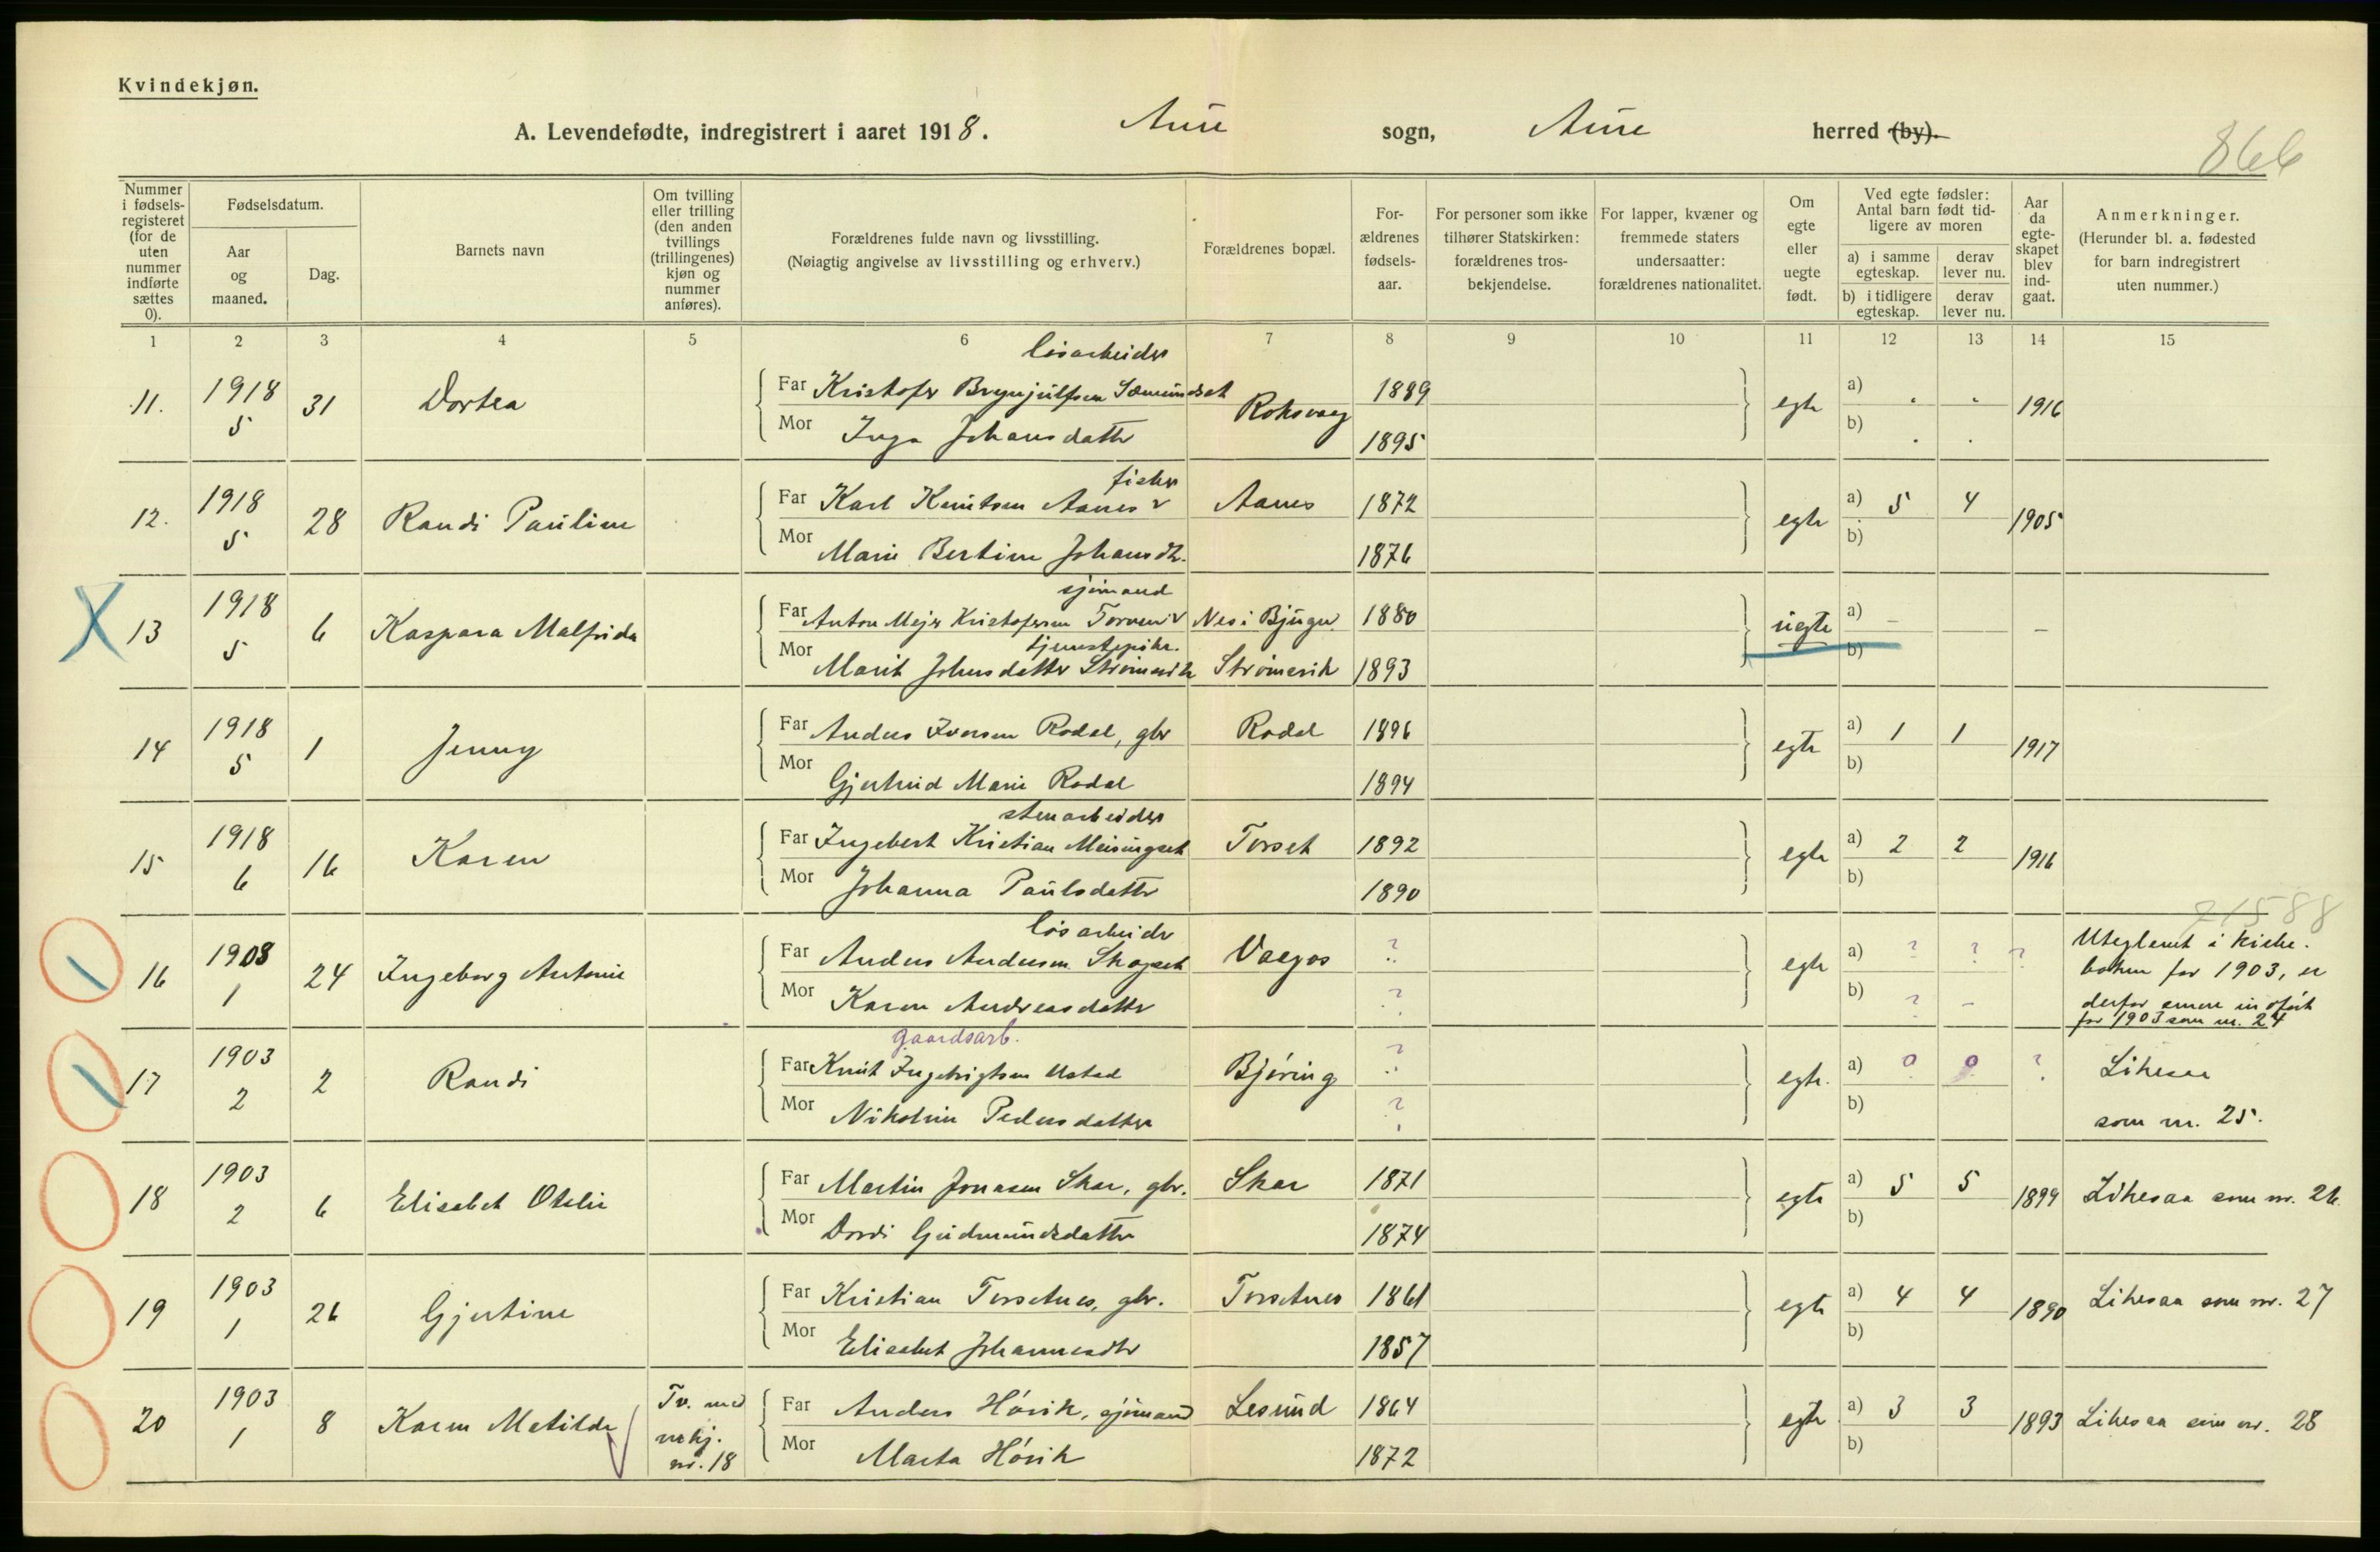 Kvindekjøn.
A. Levendefødte, indregistrert i aaret 1918. Aure sogn, Aure herred (by).
866
Nummer i fødsels-registeret (for de uten nummer indførte sættes 0).
Fødselsdatum.
Aar og maaned.
Dag.
Barnets navn
Om tvilling eller trilling (den anden tvillings (trillingenes) kjøn og nummer anføres).
Forældrenes fulde navn og livsstilling.
(Nøiagtig angivelse av livsstilling og erhverv.)
Forældrenes bopæl.
For-ældrenes fødsels-aar.
For personer som ikke tilhører Statskirken: forældrenes tros-bekjendelse.
For lapper, kvæner og fremmede staters undersaatter: forældrenes nationalitet.
Om egte eller uegte født.
Ved egte fødsler: Antal barn født tid-ligere av moren
a) i samme egteskap.
derav lever nu.
b) i tidligere egteskap.
derav lever nu.
Aar da egte-skapet blev ind-gaat.
Anmerkninger.
(Herunder bl. a. fødested for barn indregistrert uten nummer.)
1 2 3 4 5 6 7 8 9 10 11 12 13 14 15
løsarbeider
11. 1918 5 31 Dortea Far Kristofer Brynjulfsen Sæmundset Roksvaag 1889 egte a) b) 1916
Mor Inga Johansdatter 1895
fisker
12. 1918 5 28 Randi Pauline Far Karl Knutsen Aanes Aanes 1872 egte a) 5 4 b) 1905
Mor Marie Bertine Johansdtr. 1876
sjømand
X 13 1918 5 6 Kaspara Malfrida Far Anton Mejer Kristofersen Nes i Bjugn 1880 uegte a) – b) –
tjenestepike.
Mor Marit Johnsdatter Strømsvik Strømsvik 1893
14 1918 5 1 Jenny Far Anders Iversen Rodal, gbr Rodal 1896 egte a) 1 1 b) 1917
Mor Gjertrud Marie Rodal 1894
stenarbeider
15 1918 6 16 Karen Far Ingebert Kristian Meisingset Torset 1892 egte a) 2 2 b) 1916
Mor Johanna Paulsdatter 1890
71588
løsarbeider
16 1903 1 24 Ingeborg Antonie Far Anders Andersen Skogset Vaagos ? egte a) ? ? ? b) ? –
Mor Karen Andreasdatter ?
Uteglemt i kirke-
boken for 1903, er
derfor indført
for 1903 som nr. 24
gaardsarb.
17 1903 2 2 Randi Far Knut Ingebrigtsen Ustad Bjøring ? egte. a) 0 0 ? b) Likesaa
Mor Nikoline Pedersdatter ? som nr. 25.
18 1903 2 6 Elisabet Otelie Far Martin Jonasen Skar, gbr. Skar 1871 egte a) 5 5 b) 1899 Likesaa som nr. 26.
Mor Dordi Gudmundsdatter 1874
19 1903 1 26 Gjertine Far Kristian Torsetnes, gbr. Torsetnes 1861 egte a) 4 4 b) 1890 Likesaa som nr. 27
Mor Elisabet Johannesdtr 1857
20 1903 1 8 Karen Matilde Tv. med mkj. nr. 18 Far Anders Høvik, sjømand Lesund 1864 egte a) 3 3 b) 1893 Likesaa som nr. 28
Mor Marta Høvik 1872